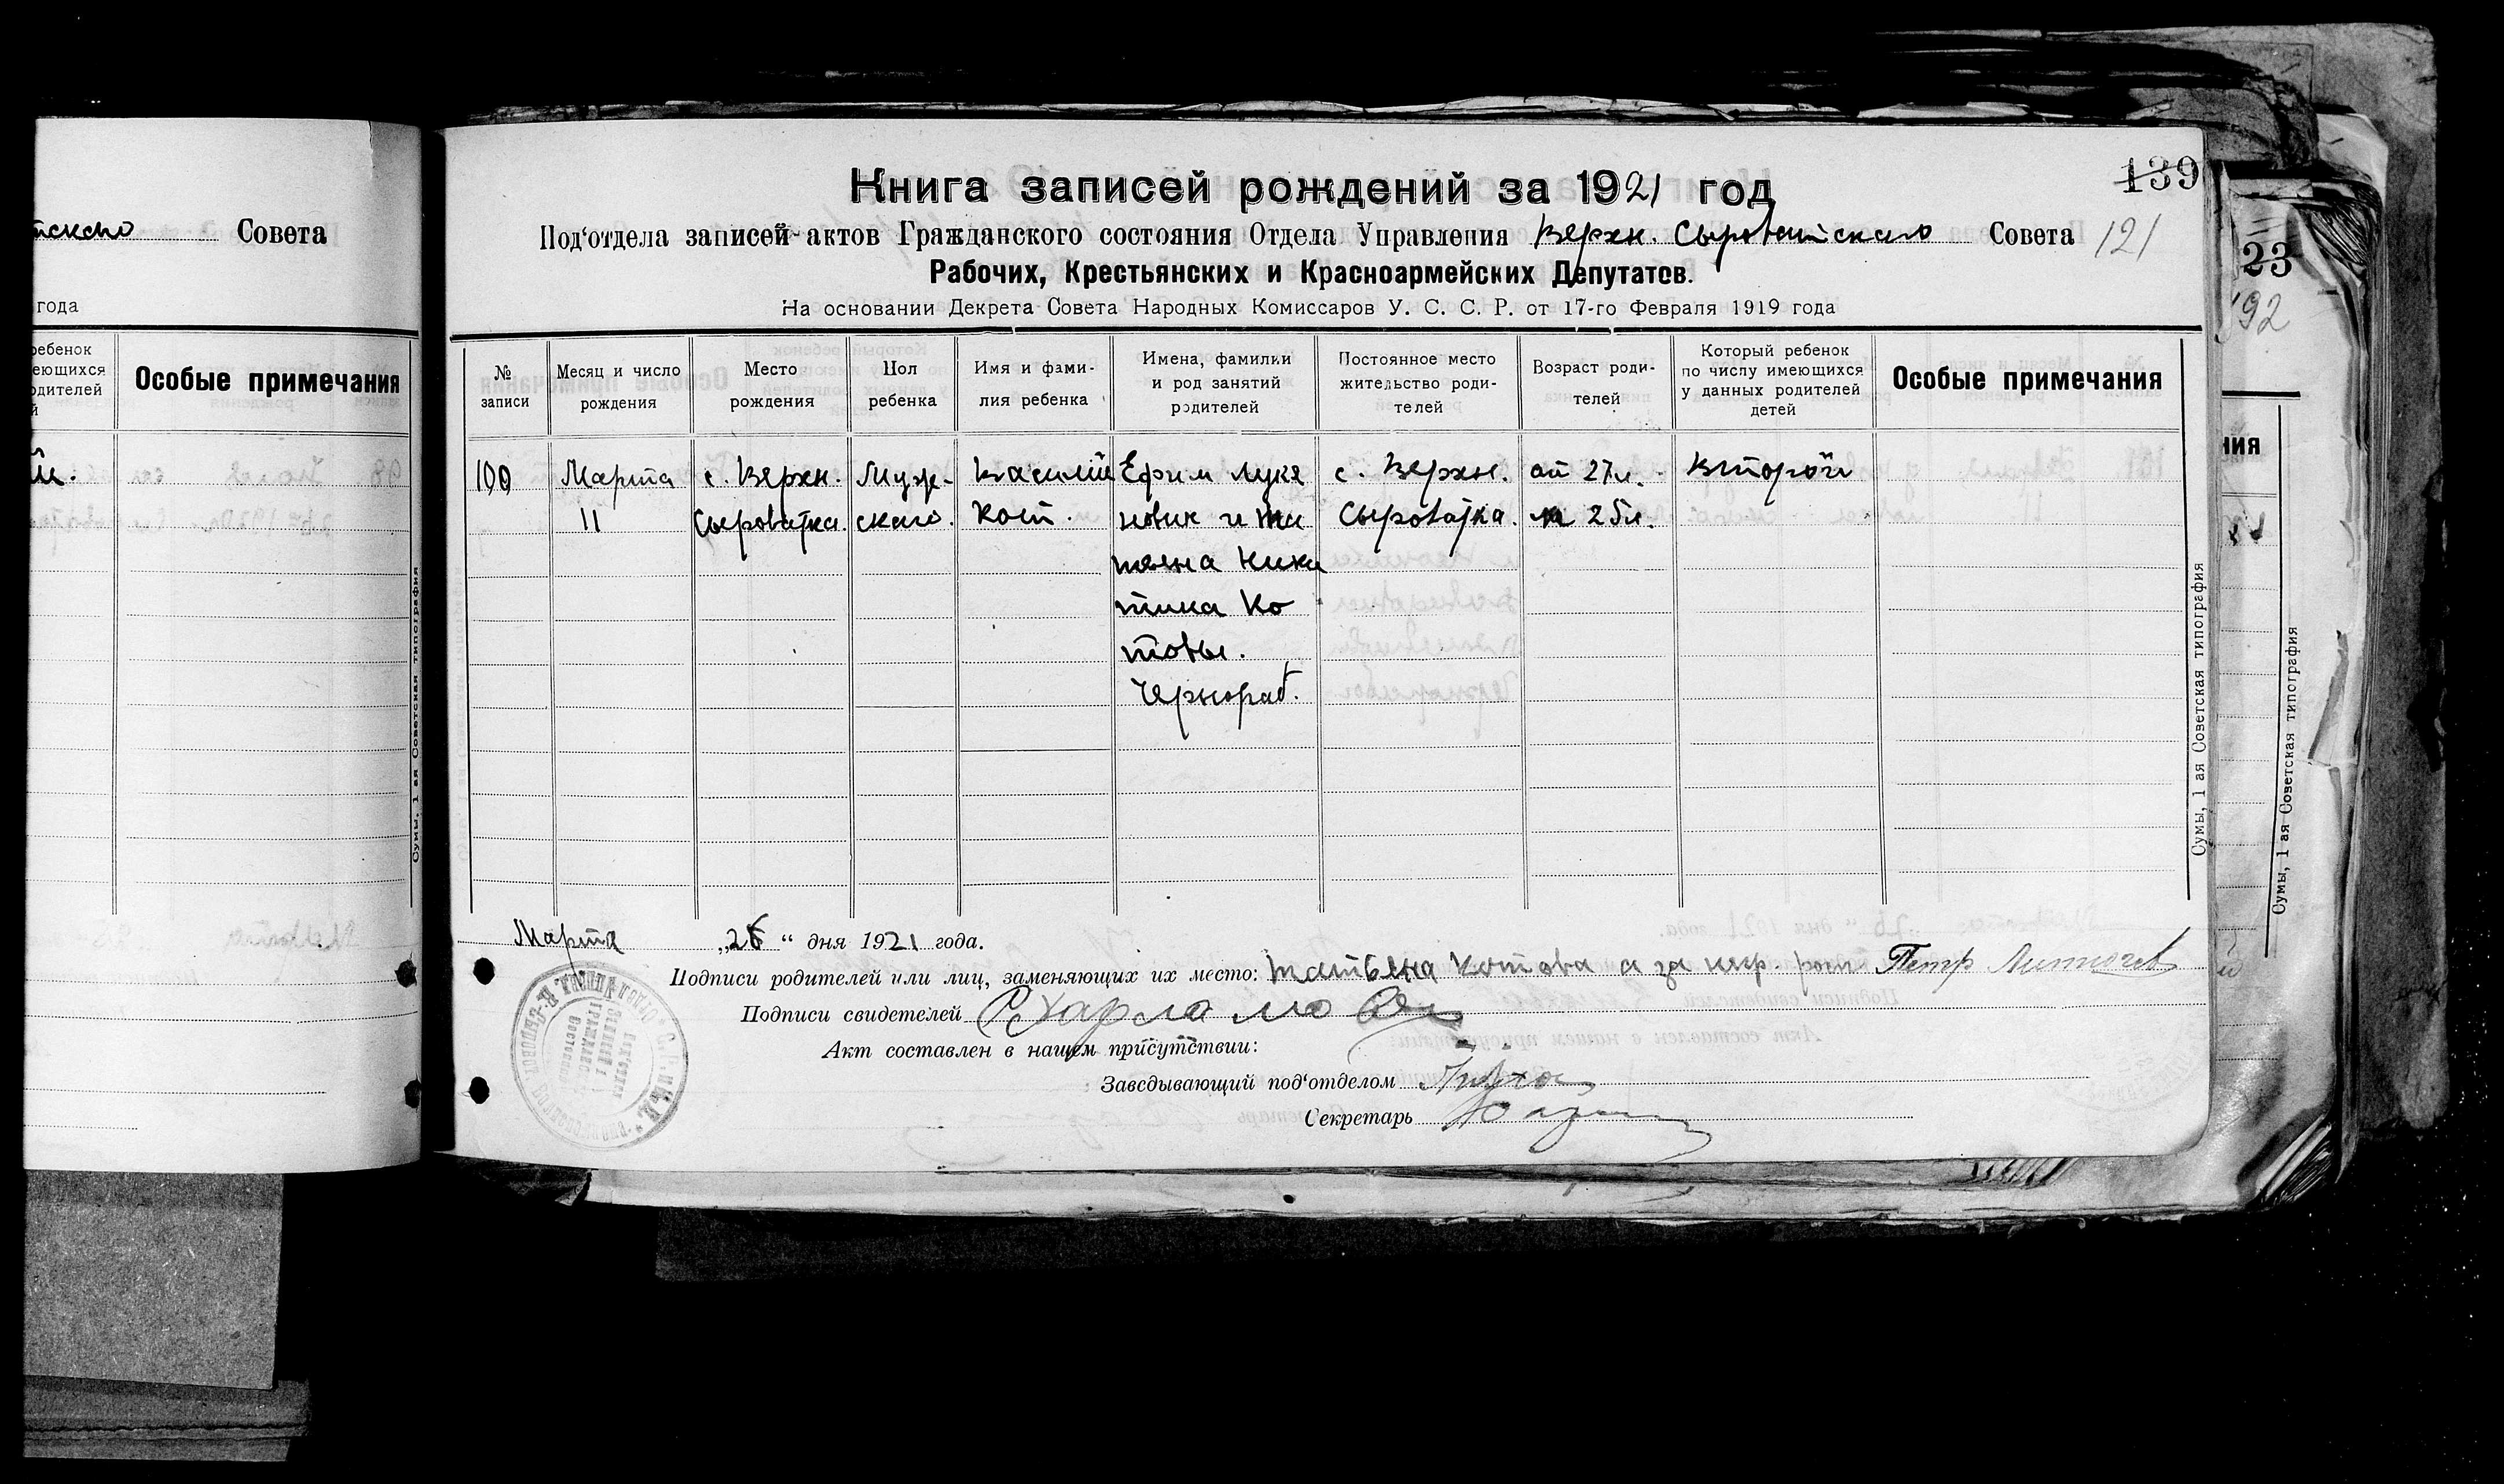 тского Совета
года
ребенок
еющихся
одителей
й
Особые примечания
й.
Сумы, 1 ая Советская типография
Книга записей рождений за 1921 год
139
Под'отдела записей актов Гражданского состояния Отдела Управления Верхн. Сыроватского Совета
121
Рабочих, Крестьянских и Красноармейских Депутатов.
На основании Декрета Совета Народных Комиссаров У. С. С. Р. от 17-го Февраля 1919 года
№
записи
Месяц и число
рождения
Место
рождения
Пол
ребенка
Имя и фами-
лия ребенка
Имена, фамилии
и род занятий
родителей
Постоянное место
жительство роди-
телей
Возраст роди-
телей
Который ребенок
по числу имеющихся
у данных родителей
детей
Особые примечания
100
Марта
11
с. Верхн.
Сыроватка.
Муж-
ского.
Василий
Кот.
Ефим Лукя
нович и Та
тяна Ники
тина Ко
товы.
Чернораб.
с. Верхн.
Сыроватка.
от 27л.
м 25л.
Второй
Сумы, 1 ая Советская типография
Марта „26“ дня 1921 года.
Подписи родителей или лиц, заменяющих их место: Татьяна Котова а за негр. росп Петр
Подписи свидетелей Харламов
Акт составлен в нашем присутствии:
Заведывающий под'отделом
Секретарь
23
192
ния
Сумы, 1 ая Советская типография